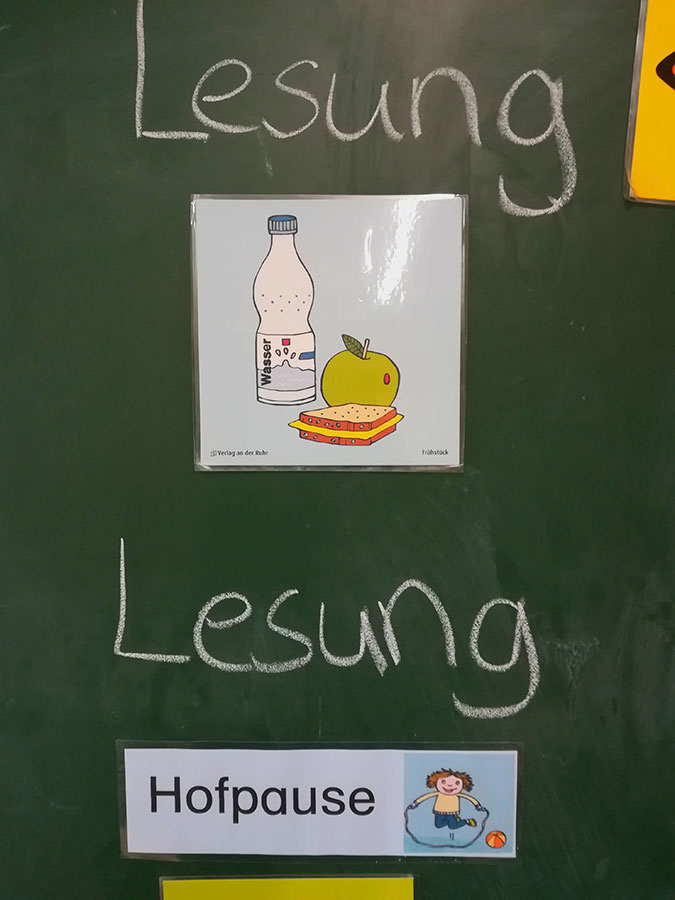 Lesung
Wasser
Verlag an der Ruhr
Frühstück
Lesung
Hofpause